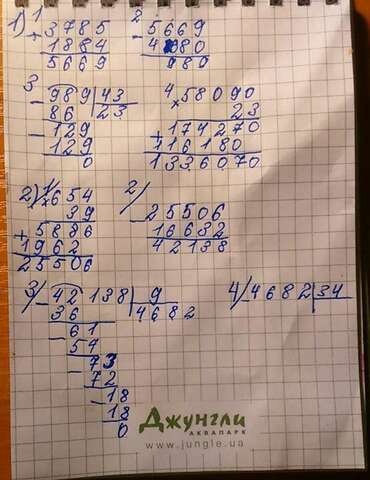 1) 1 2
+3785 -5669
1884 4680
5669 989
3 4
-989|43 ×58090
86 23 23
-129 +174270
129 116180
0 1336070
2) 1/ ×654 2/
39 -25506
+5886 16632
1962 42138
25506
3/ -42138|9 4/ 4682|34
36 4682
-61
54
-73
72
-18
18
0
Джунгли
АКВАПАРК
www.jungle.ua